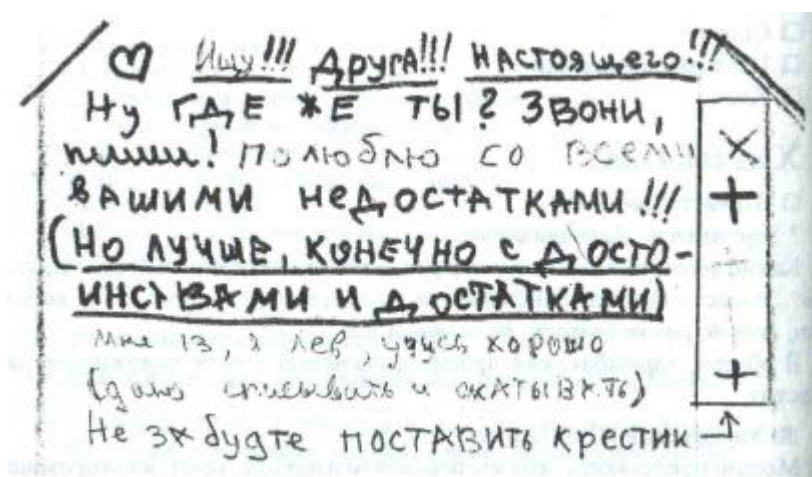 Ищу!!! ДРУГА!!! НАСТОЯЩЕГО!!!
Ну ГДЕ ЖЕ ТЫ? ЗВОНИ,
пиши! Полюблю со ВСЕМИ
ВАШИМИ НЕДОСТАТКАМИ!!!
(НО ЛУЧШЕ, КОНЕЧНО С ДОСТО-
ИНСТВАМИ И ДОСТАТКАМИ)
мне 13, я лев, учусь хорошо
(даю списывать и скАТЫВАТЬ)
Не забудте поставить крестик